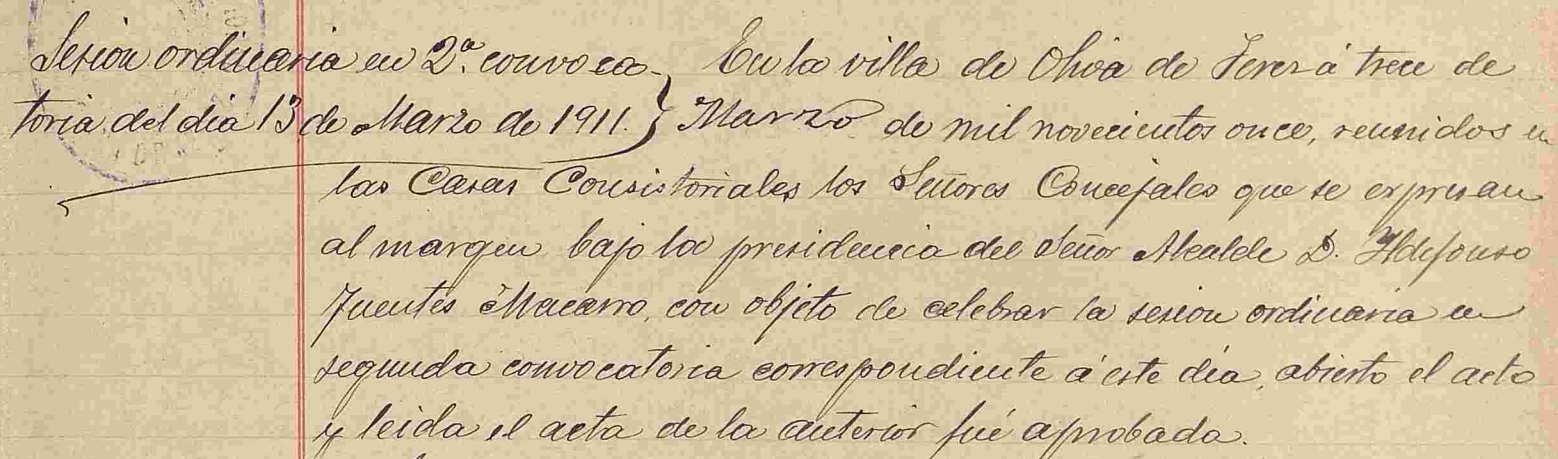 Sesion ordinaria en 2ª. convoca-
toria del dia 13 de Marzo de 1911.
En la villa de Oliva de Jerez á trece de
Marzo de mil novecientos once, reunidos en
las Casas Consistoriales los Señores Concejales que se expresan
al margen bajo la presidencia del Señor Alcalde D. Ildefonso
Fuentes Macarro, con objeto de celebrar la sesion ordinaria en
segunda convocatoria correspondiente á este día, abierto el acto
y leida el acta de la anterior fué aprobada.